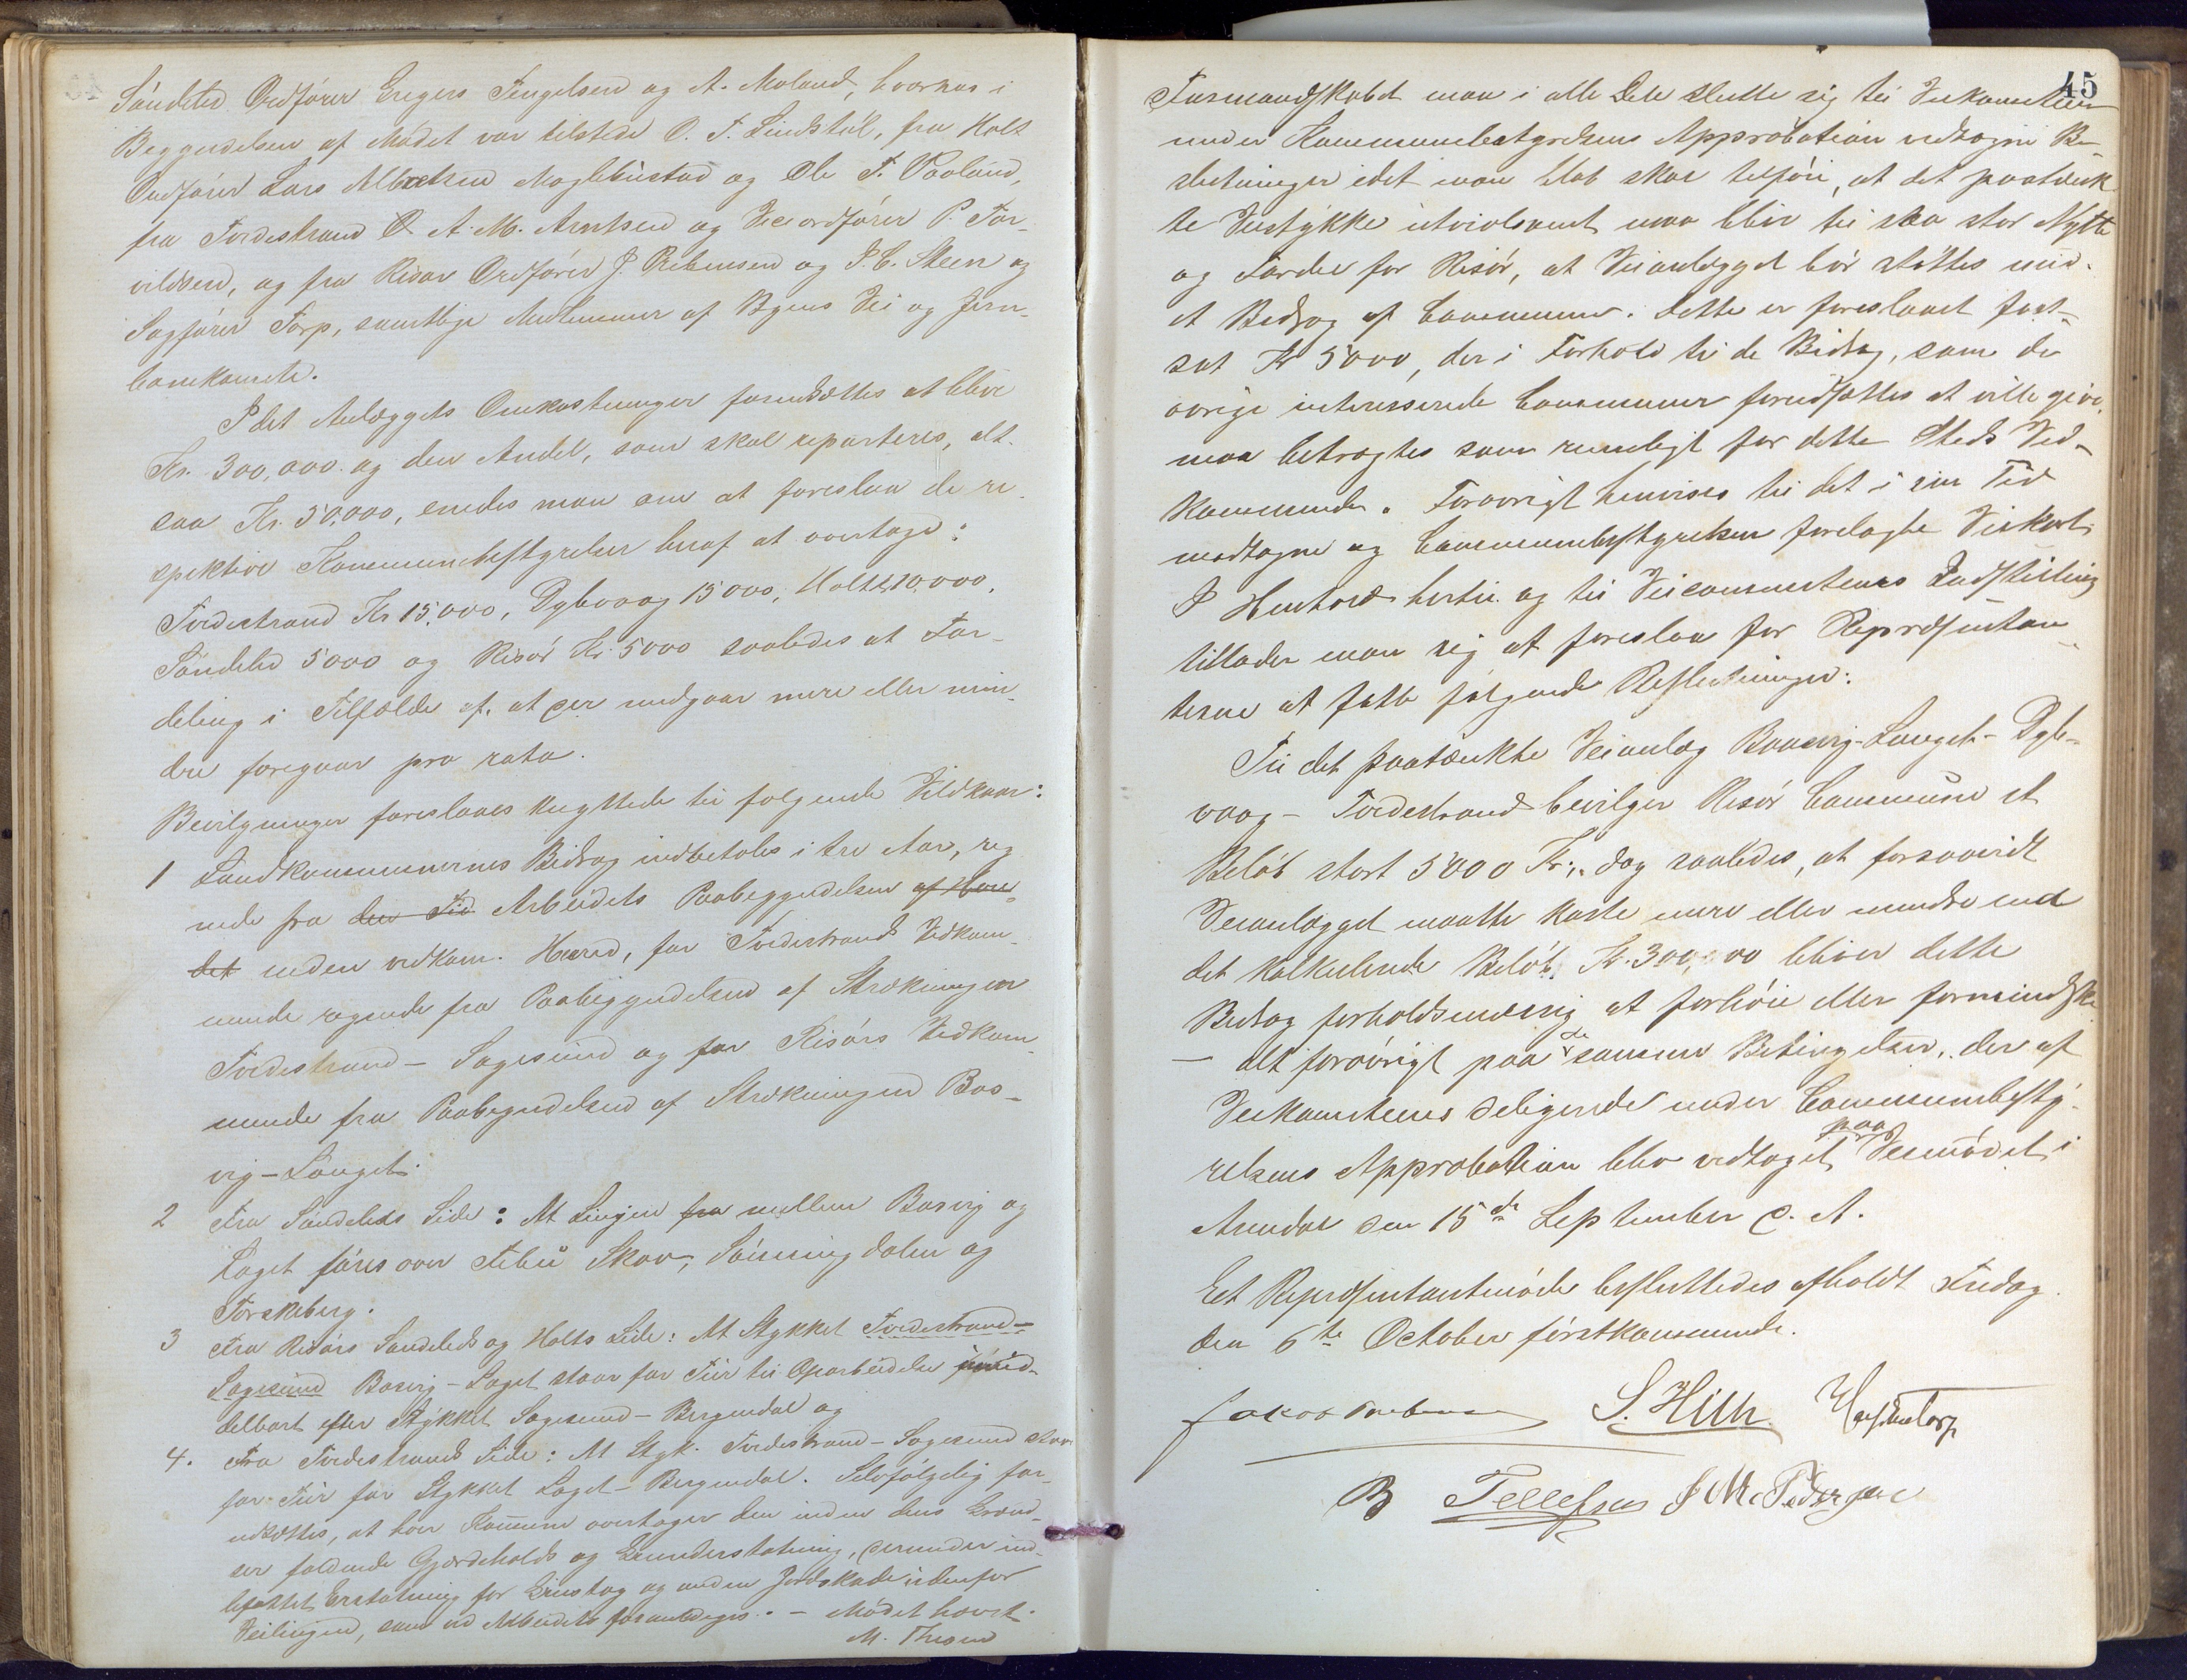 Söndeled Ordförer Gregers Tengelsen og A. Moland, hvorhos i
Begyndelsen af Mödet var tilstede O. T. Lindstöl, fra Holt
Ordförer Lars Albretsen Moglebustad og Ole T. Vaaland,
fra Tvedestrand O. A. M. Arntsen og Viceordförer P. Tor-
vildsen, og fra Risör Ordförer J. Rebensen og J. C. Steen og
Sagförer Torp, samtlige Medlemmer af Byens Vei og Jern-
banekomite.
Idet Anlæggets Omkostninger forudsættes at blive
Kr. 300,000 og den Andel, som skal reparteres, alt-
saa Kr. 50,000, enedes man om at foreslaa de re-
spektive Kommunebestyrelser heraf at overtage:
Tvedestrand Kr 15,000, Dybvaag 15000, Holt 10,000,
Söndeled 5000 og Risör Kr. 5000 saaledes at For-
deling i Tilfælde af, at der medgaar mere eller min-
dre foregaar pro rata.
Bevilgninger foreslaaes knyttede til fölgende Vilkaar:
1 Landkommunernes Bidrag indbetales i tre Aar, reg-
nede fra den Tid Arbeidets Paabegyndelsen af Herre-
det inden vedkom. Herred, for Tvedestrands Vedkom-
mende regnede fra Paabegyndelsen af Strækningen
Tvedestrand - Sagesund og for Risörs Vedkom-
mende fra Paabegyndelsen af Strækningen Bos-
vig - Langet.
2 Fra Söndeleds Side: At Linjen fra mellem Bosvig og
Laget föres over Aabu Skov, Sönningdalen og
Torskeberg.
3 Fra Risörs Söndeleds og Holts Side: At Stykket Tvedestrand-
Sagesund Bosvig - Laget staar for Tur til Oparbeidelse umid-
delbart efter Stykket Sagesund - Bergendal og
4. Fra Tvedestrands Side: At Styk. Tvedestrand - Sagesund staar
for Tur før Stykket Laget - Bergendal. Selvfölgelig for-
udsættes, at hver Kommune overtager den inden dens Grænd-
ser faldende Gjærdeholds og Grunderstatning, derunder ind-
befattet Erstatning for Grustag og anden Jordskade udenfor
Veilinjen, som ved Arbeidets foranlediges. - Mödet hævet.
M. Thesen
45
Formandskabet maa i alle Dele slutte sig til Veikomiteens
under Kommunebestyrelsens Approbation vedtagne Be-
slutninger idet man blot skal tilföie, at det paatænk-
te Veistykke utvivlsomt maa blive til saa stor Nytte
og Fordel for Risör, at Veianlægget bör stöttes med
et Bidrag af Communen. Dette er foreslaaet fast-
sat Kr 5000, der i Forhold til de Bidrag, som de
övrige interesserede Communer forudsættes at ville give,
maa betragtes som rimeligt for dette Steds Ved-
kommende. Forövrigt henvises til det i sin Tid
modtagne og Communebestyrelsen forelagte Veikart.
I Henhold hertil og til Veicommiteens Indstilling
tillader man sig at foreslaa for Repræsentan-
terne at fatte fölgende Beslutninger:
Til det paatænkte Veianlæg Bosvig-Langet-Dyb-
vaag - Tvedestrand bevilger Risör Commune et
Belöb stort 5000 Kr., dog saaledes, at forsaavidt
Veianlægget maatte koste mere eller mindre end
det kalkulerede Belöb, Kr. 300,000 bliver dette
Bidrag forholdsmæssig at forhöie eller formindske
- alt forövrigt paa de samme Betingelser, der af
Veikomiteens Deligerede under Communebesty-
relsens Approbation blev vedtaget paa Veimödet i
Arendal den 15de September d. A.
Et Repræsentantmöde besluttedes afholdt Fredag
den 6te October förstkommende.
S. Hilh
B Tellefsen J M Pedersen